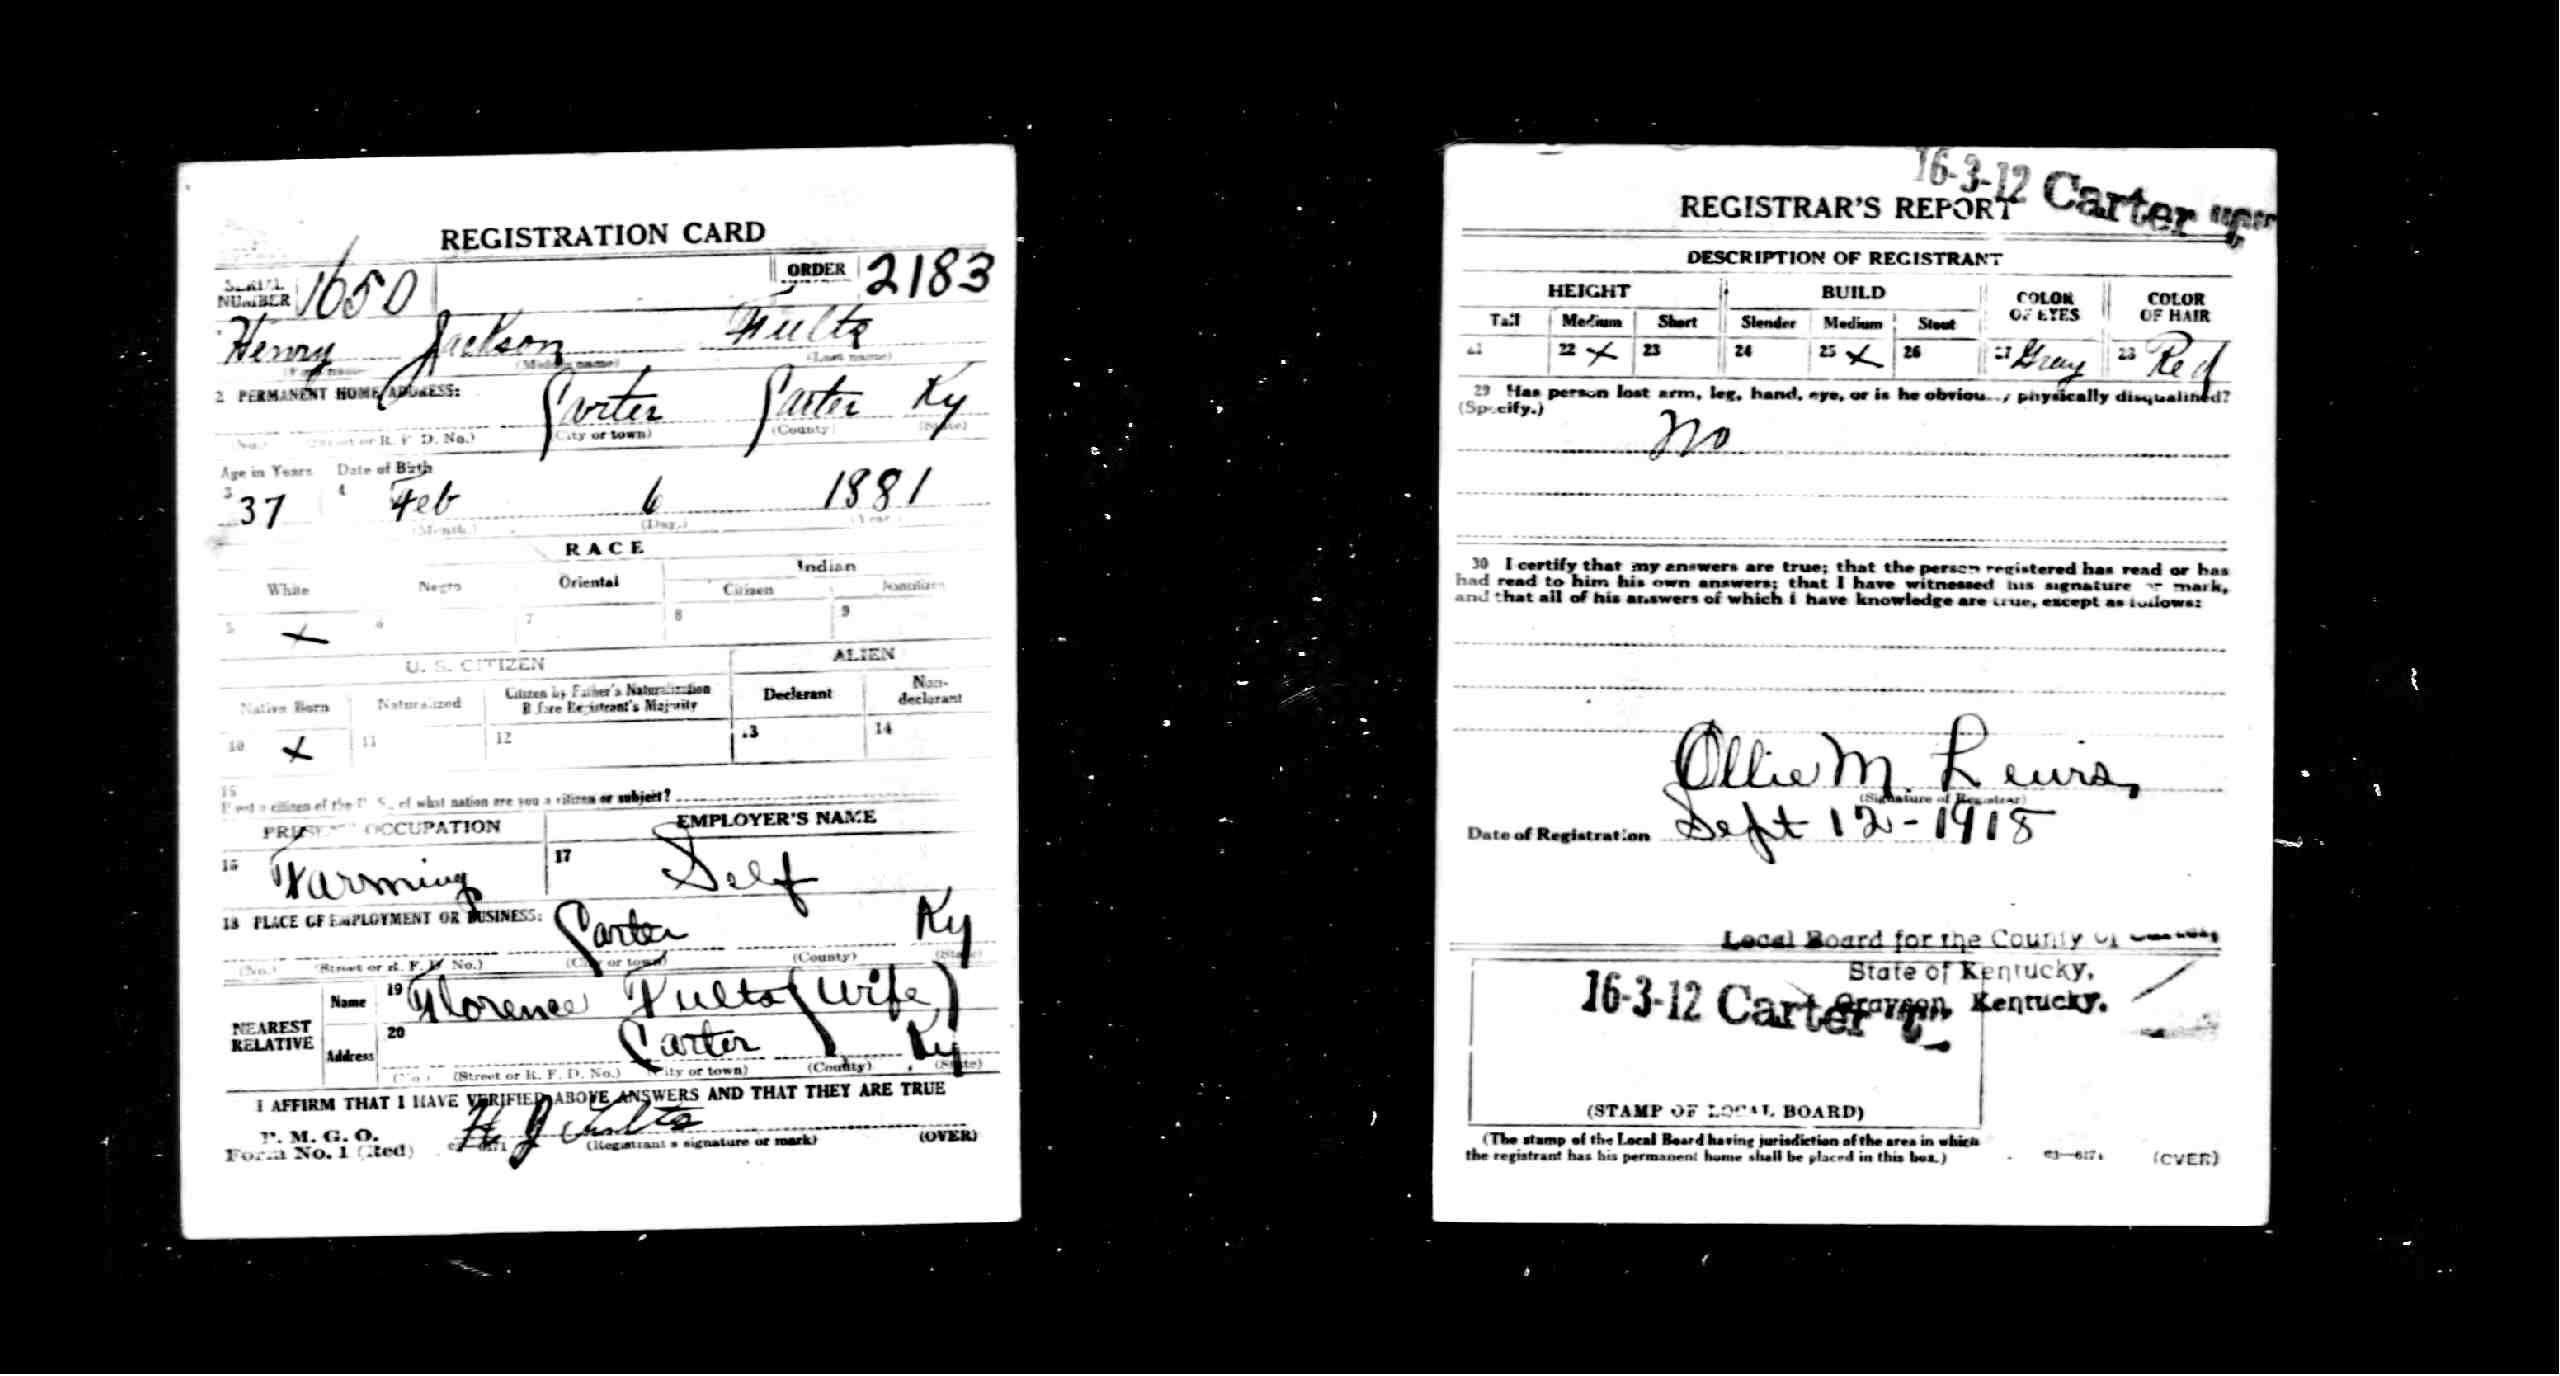 REGISTRATION CARD
SERIAL NUMBER 1650 ORDER 2183
Henry Jackson Fultz
(Middle name) (Last name)
2 PERMANENT HOME ADDRESS: Carter Carter Ky
(No.) (Street or R. F. D. No.) (City or town) (County) (State)
Age in Years Date of Birth
3 37 4 Feb 6 1881
(Month.) (Day.) (Year.)
RACE
White Negro Oriental Indian
Citizen Noncitizen
5 X 6 7 8 9
U. S. CITIZEN ALIEN
Native Born Naturalized Citizen by Father's Naturalization Before Registrant's Majority Declarant Non-declarant
10 X 11 12 13 14
15
If not a citizen of the U. S., of what nation are you a citizen or subject?
PRESENT OCCUPATION EMPLOYER'S NAME
16 Farming 17 Self
18 PLACE OF EMPLOYMENT OR BUSINESS: Carter Ky
(No.) (Street or R. F. D. No.) (City or town) (County) (State)
NEAREST RELATIVE Name 19 Florence Fultz (Wife)
Address 20 Carter Ky
(No.) (Street or R. F. D. No.) (City or town) (County) (State)
I AFFIRM THAT I HAVE VERIFIED ABOVE ANSWERS AND THAT THEY ARE TRUE
P. M. G. O.
Form No. 1 (Red) H J Fultz (Registrant's signature or mark) (OVER)
16-3-12 Carter
REGISTRAR'S REPORT
DESCRIPTION OF REGISTRANT
HEIGHT BUILD COLOR OF EYES COLOR OF HAIR
Tall Medium Short Slender Medium Stout
21 22 X 23 24 25 X 26 27 Gray 28 Red
29 Has person lost arm, leg, hand, eye, or is he obviously physically disqualified?
(Specify.)
No
30 I certify that my answers are true; that the person registered has read or has
had read to him his own answers; that I have witnessed his signature or mark,
and that all of his answers of which I have knowledge are true, except as follows:
Ollie M. Lewis,
(Signature of Registrar)
Date of Registration Sept 12-1918
Local Board for the County of
State of Kentucky,
Grayson, Kentucky.
16-3-12 Carter
(STAMP OF LOCAL BOARD)
(The stamp of the Local Board having jurisdiction of the area in which
the registrant has his permanent home shall be placed in this box.)
(OVER)